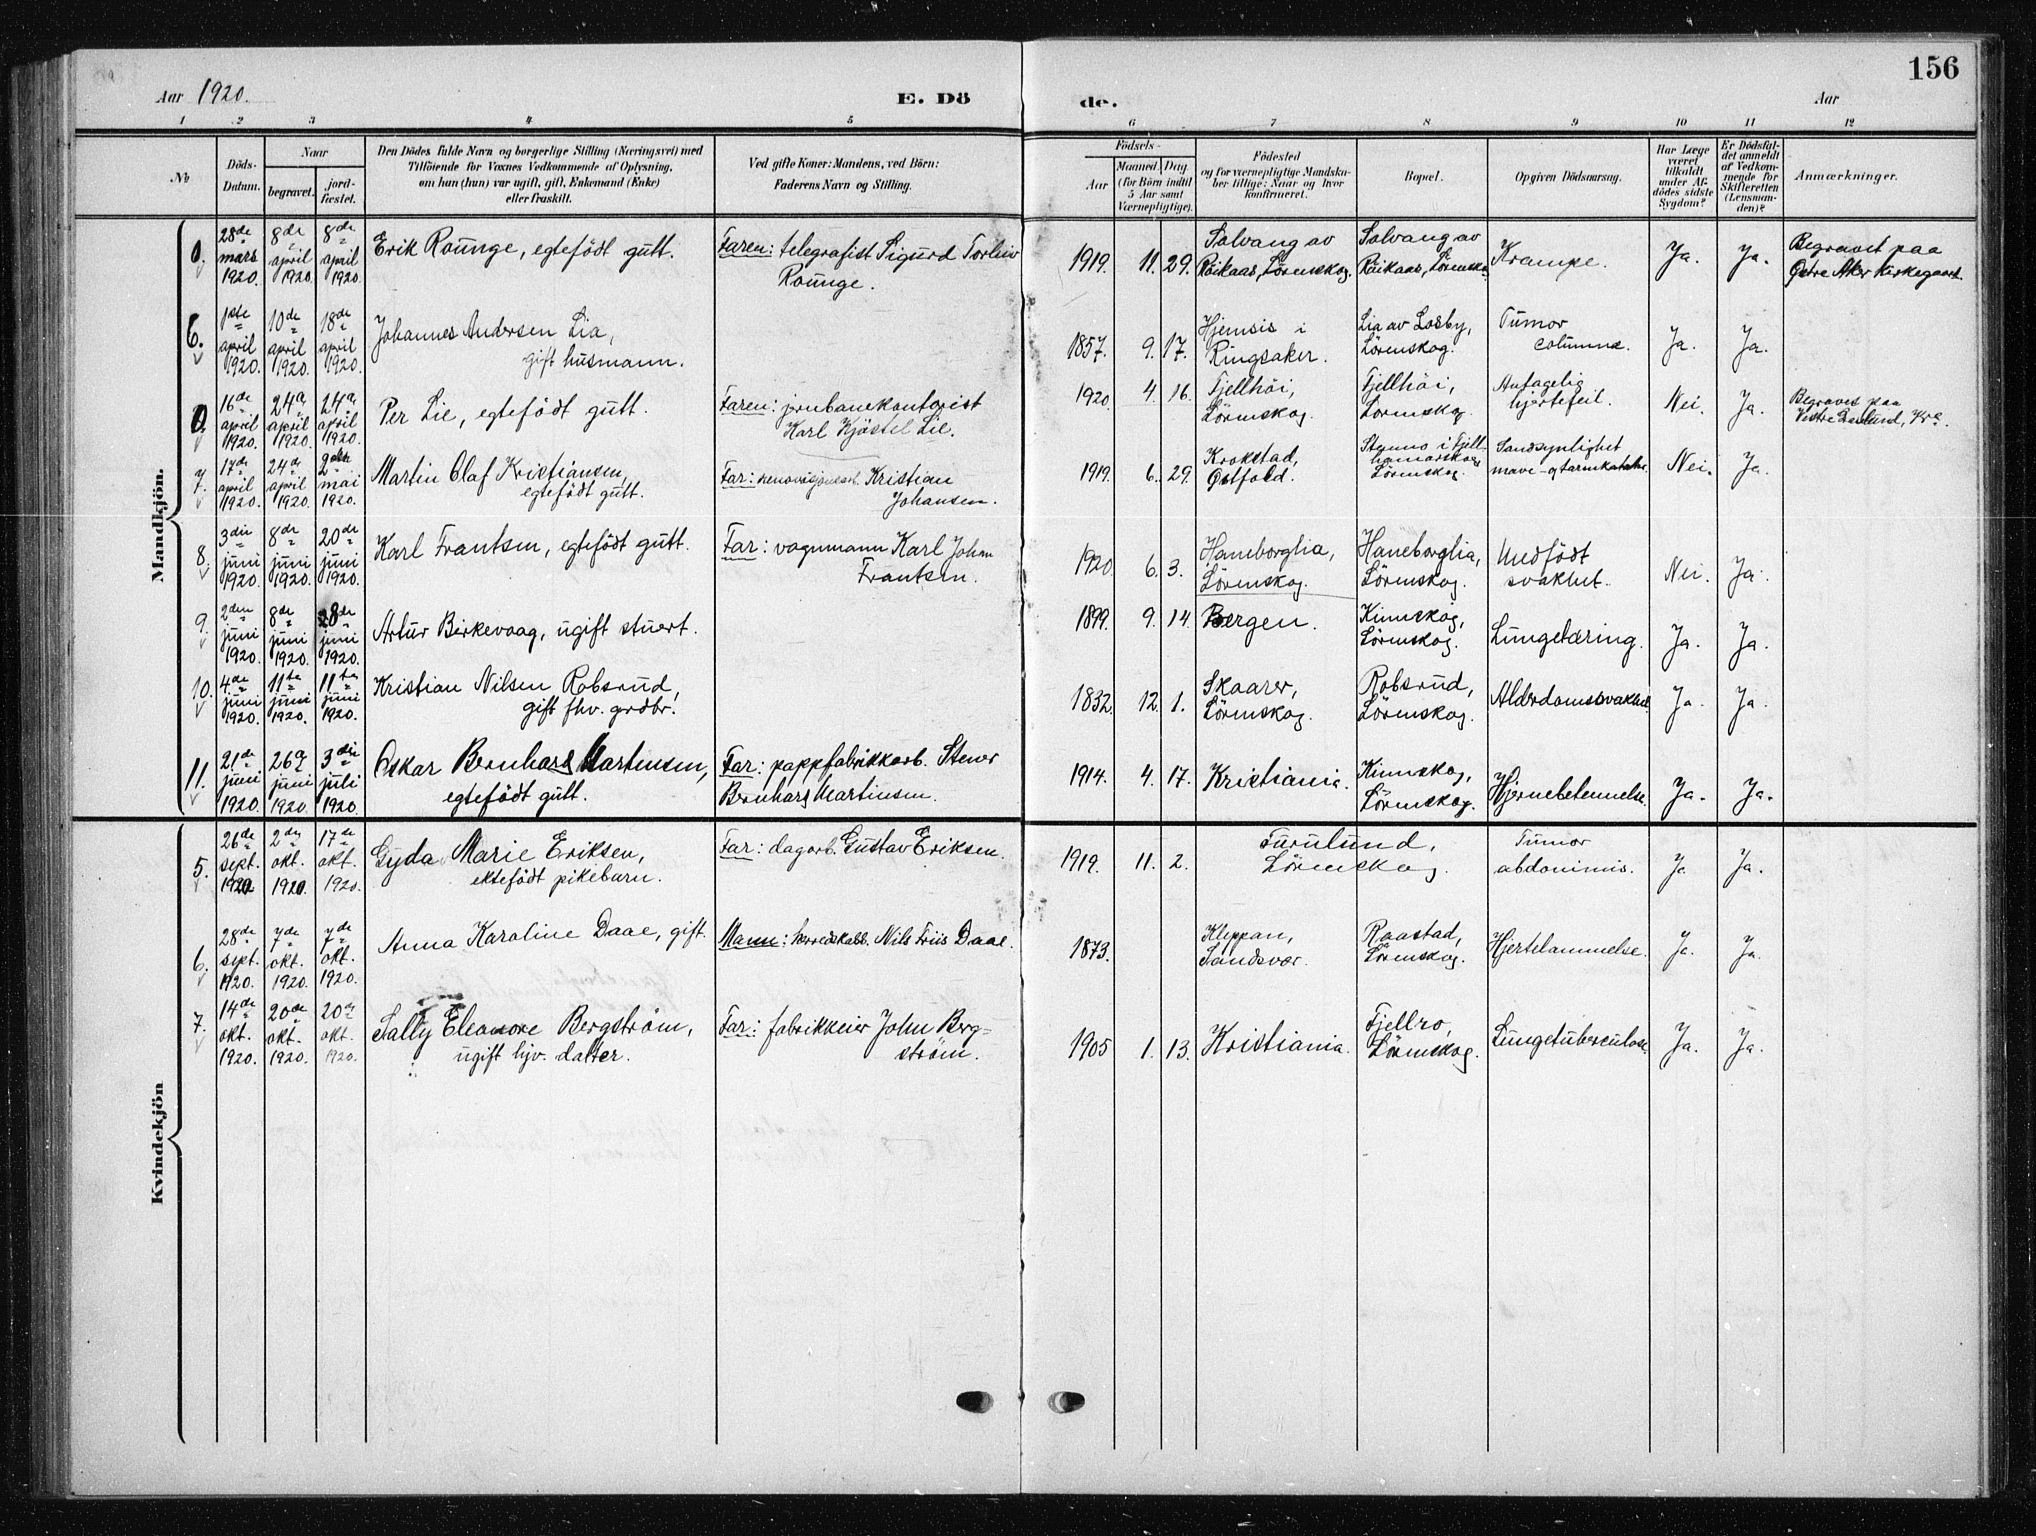 156
Aar 1920.
E. Dö
de.
Aar
1 2 3 4 5 6 7 8 9 10 11 12
No
Döds-
Datum.
Naar
begravet.
jord-
fæstet.
Den Dödes fulde Navn og borgerlige Stilling (Næringsvei) med
Tilföiende for Voxnes Vedkommende af Oplysning,
om han (hun) var ugift, gift, Enkemand (Enke)
eller fraskilt.
Ved gifte Koner: Mandens, ved Börn:
Faderens Navn og Stilling.
Födsels-
Aar
Maaned. Dag.
(for Börn indtil
5 Aar samt
Værnepligtige).
Födested
og for værnepligtige Mandska-
ber tillige: Naar og hvor
konfirmeret.
Bopæl.
Opgiven Dödsaarsag.
Har Læge
været
tilkaldt
under Af-
dödes sidste
Sygdom?
Er Dödsfal-
det anmeldt
af Vedkom-
mende for
Skifteretten
(Lensman-
den)?
Anmærkninger.
Mandkjön.
0. 28de mars 1920. 8de april 1920. 8de april 1920.
Erik Rounge, egtefödt gutt.
Faren: telegrafist Sigurd Torleiv
Rounge.
1919. 11. 29.
Solvang av
Röikaas, Lörenskog.
Solvang av
Röikaas, Lörenskog.
Krampe.
Ja. Ja.
Begravet paa
Östre Aker kirkegaard.
6. 1ste april 1920. 10de april 1920. 18de april 1920.
Johannes Andersen Lia,
gift husmann.
1857. 9. 17.
Hjemsis i
Ringsaker.
Lia av Losby,
Lörenskog.
Tumor
columna.
Ja. Ja.
0. 16de april 1920. 24a april 1920. 24a april 1920.
Per Lie, egtefödt gutt.
Faren: jernbanekontorist
Karl Kjöstel Lie.
1920. 4. 16.
Fjellhöi,
Lörenskog.
Fjellhöi,
Lörenskog.
Antagelig
hjertefeil.
Nei. Ja.
Begravet paa
Vestre Kra.
7. 17de april 1920. 24de april 1920. 2den mai 1920.
Martin Olaf Kristiansen,
egtefödt gutt.
Far: renovasjonsarb. Kristian
Johansen.
1919. 6. 29.
Krokstad,
Östfold.
i Fjell-
Lörenskog.
Sandsynlighet
mave- og tarmkatahr.
Nei. Ja.
8. 3die juni 1920. 8de juni 1920. 20de juni 1920.
Karl Frantsen, egtefödt gutt.
Far: vognmann Karl Johan
Frantsen.
1920. 6. 3.
Haneborglia,
Lörenskog.
Haneborglia,
Lörenskog.
Medfödt
svakhet.
Nei. Ja.
9. 2den juni 1920. 8de juni 1920. 8de juni 1920.
Artur Birkevaag, ugift stuert.
1899. 9. 14.
Bergen.
Kinnskog,
Lörenskog.
Lungetæring.
Ja. Ja.
10. 4de juni 1920. 11te juni 1920. 11te juni 1920.
Kristian Nilsen Robsrud,
gift fhv. grdbr.
1832. 12. 1.
Skaarer,
Lörenskog.
Robsrud,
Lörenskog.
Alderdomssvakhet.
Ja. Ja.
11. 21de juni 1920. 26a juni 1920. 3die juli 1920.
Oskar Bernhard Martinsen,
egtefödt gutt.
Far: pappfabrikkarb. Stener
Bernhard Martinsen.
1914. 4. 17.
Kristiania.
Kinnskog,
Lörenskog.
Hjernebetennelse.
Ja. Ja.
Kvindekjön
5. 26de sept. 1920 2den okt. 1920. 17de okt. 1920.
Gyda Marie Eriksen,
ektefödt pikebarn.
Far: dagarb. Gustav Eriksen.
1919. 11. 2.
Furulund,
Lörenskog.
Tumor
abdominis.
Ja Ja.
6. 28de sept. 1920. 7de okt. 1920. 7de okt. 1920.
Anna Karoline Daae, gift.
Mann: herredskass. Nils Friis Daae.
1873.
Kleppan,
Sandsvær.
Raastad,
Lörenskog.
Hjertelammelse.
Ja. Ja.
7. 14de okt. 1920. 20de okt. 1920. 20de okt. 1920.
Sally Eleonore Bergström,
ugift hjv. datter.
Far: fabrikkeier John Berg=
ström.
1905 1. 13.
Kristiania.
Fjellro,
Lörenskog.
Lungetuberculose.
Ja. Ja.